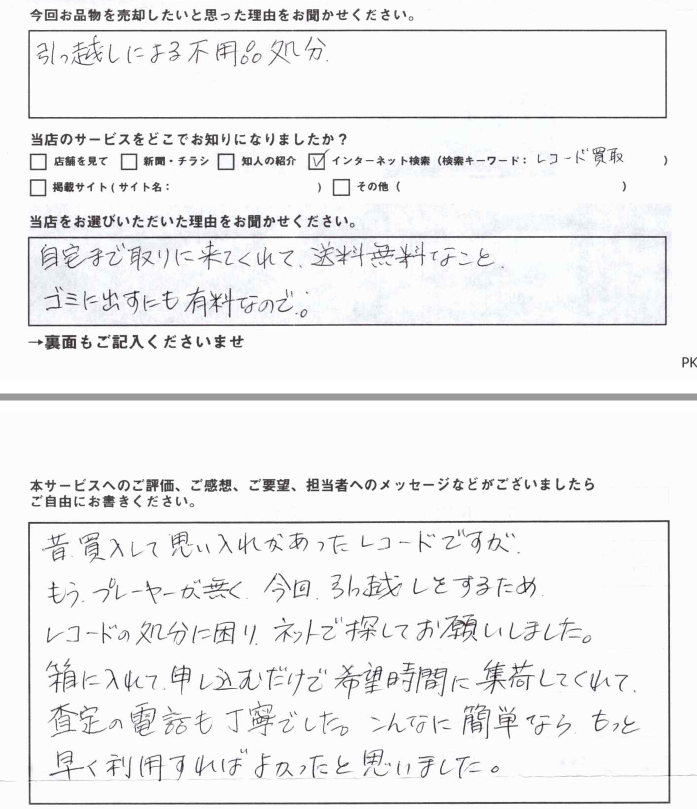 今回お品物を売却したいと思った理由をお聞かせください。
引っ越しによる不用品処分.
当店のサービスをどこでお知りになりましたか？
□ 店舗を見て □ 新聞・チラシ □ 知人の紹介 ☑ インターネット検索（検索キーワード：レコード買取 ）
□ 掲載サイト（サイト名： ） □ その他（ ）
当店をお選びいただいた理由をお聞かせください。
自宅まで取りに来てくれて、送料無料なこと、
ゴミに出すにも有料なので。
→裏面もご記入くださいませ
PK
本サービスへのご評価、ご感想、ご要望、担当者へのメッセージなどがございましたら
ご自由にお書きください。
昔、買入して思い入れがあったレコードですが、
もう、プレーヤーが無く、今回、引っ越しをするため
レコードの処分に困り、ネットで探してお願いしました。
箱に入れて、申し込むだけで希望時間に集荷してくれて、
査定の電話も丁寧でした。こんなに簡単なら、もっと
早く利用すればよかったと思いました。